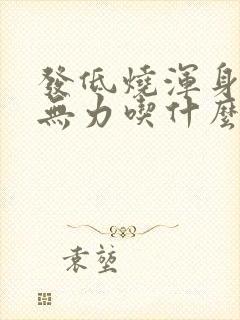 發低燒渾身
無力喫什麼
袁堃